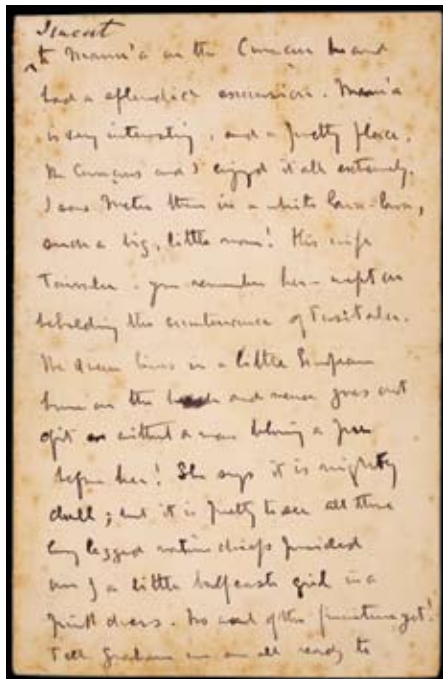 I went
to Manu'a on the Curaçoa and
had a splendid excursion. Manu'a
is very interesting, and a pretty place.
The Curaçoas and I enjoyd it all extremely.
I saw there in a white lava-lava,
such a big, little man! His wife
you remember her - wept on
beholding the countenance of Tusitala.
The queen lives in a little European
house on the and never goes out
of it without a man a
before her! She says it is mighty
dull; but it is pretty to see all these
long legged native chiefs presided
over by a little halfcaste girl in a
print dress. No word of the furniture yet!
Tell Graham we are all ready to